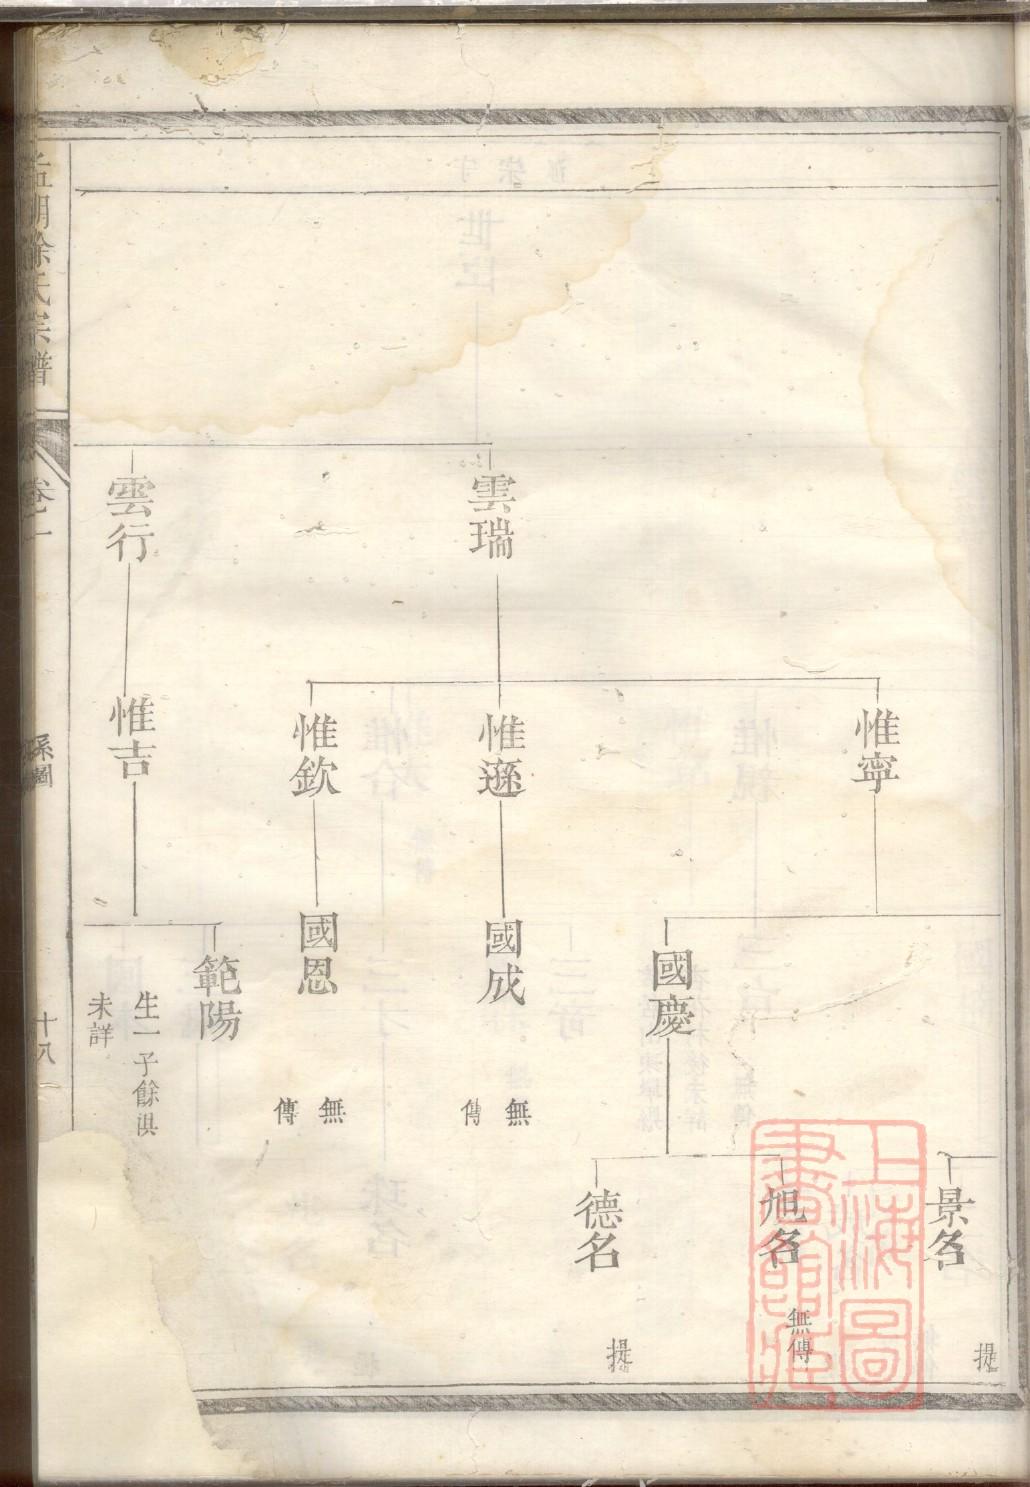 雲瑞
雲行
惟寧
惟遜
惟欽
惟吉
國慶
國成
無傳
國恩
無傳
範陽
生一子餘淇
未詳
景名
提
旭名
無傳
德名
提
氏宗譜
卷二
系圖
十八
上海圖書館藏